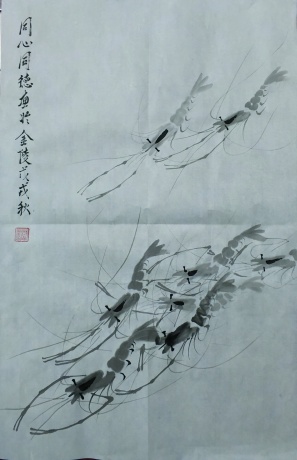 同心同德画于金陵戊戌秋